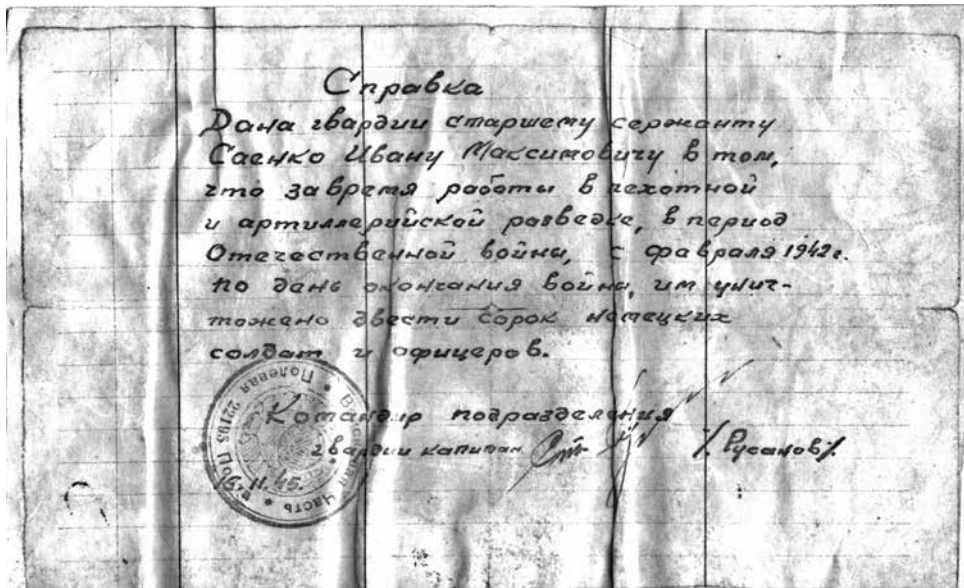 Справка
Дана гвардии старшему сержанту
Саенко Ивану Максимовичу в том,
что за время работы в пехотной
и артиллерийской разведке, в период
Отечественной войны, с февраля 1942г.
по день окончания войны, им унич-
тожено двести сорок немецких
солдат и офицеров.
Командир подразделения
гвардии капитан /Русанов/.
Полевая Почта
часть
11.45.